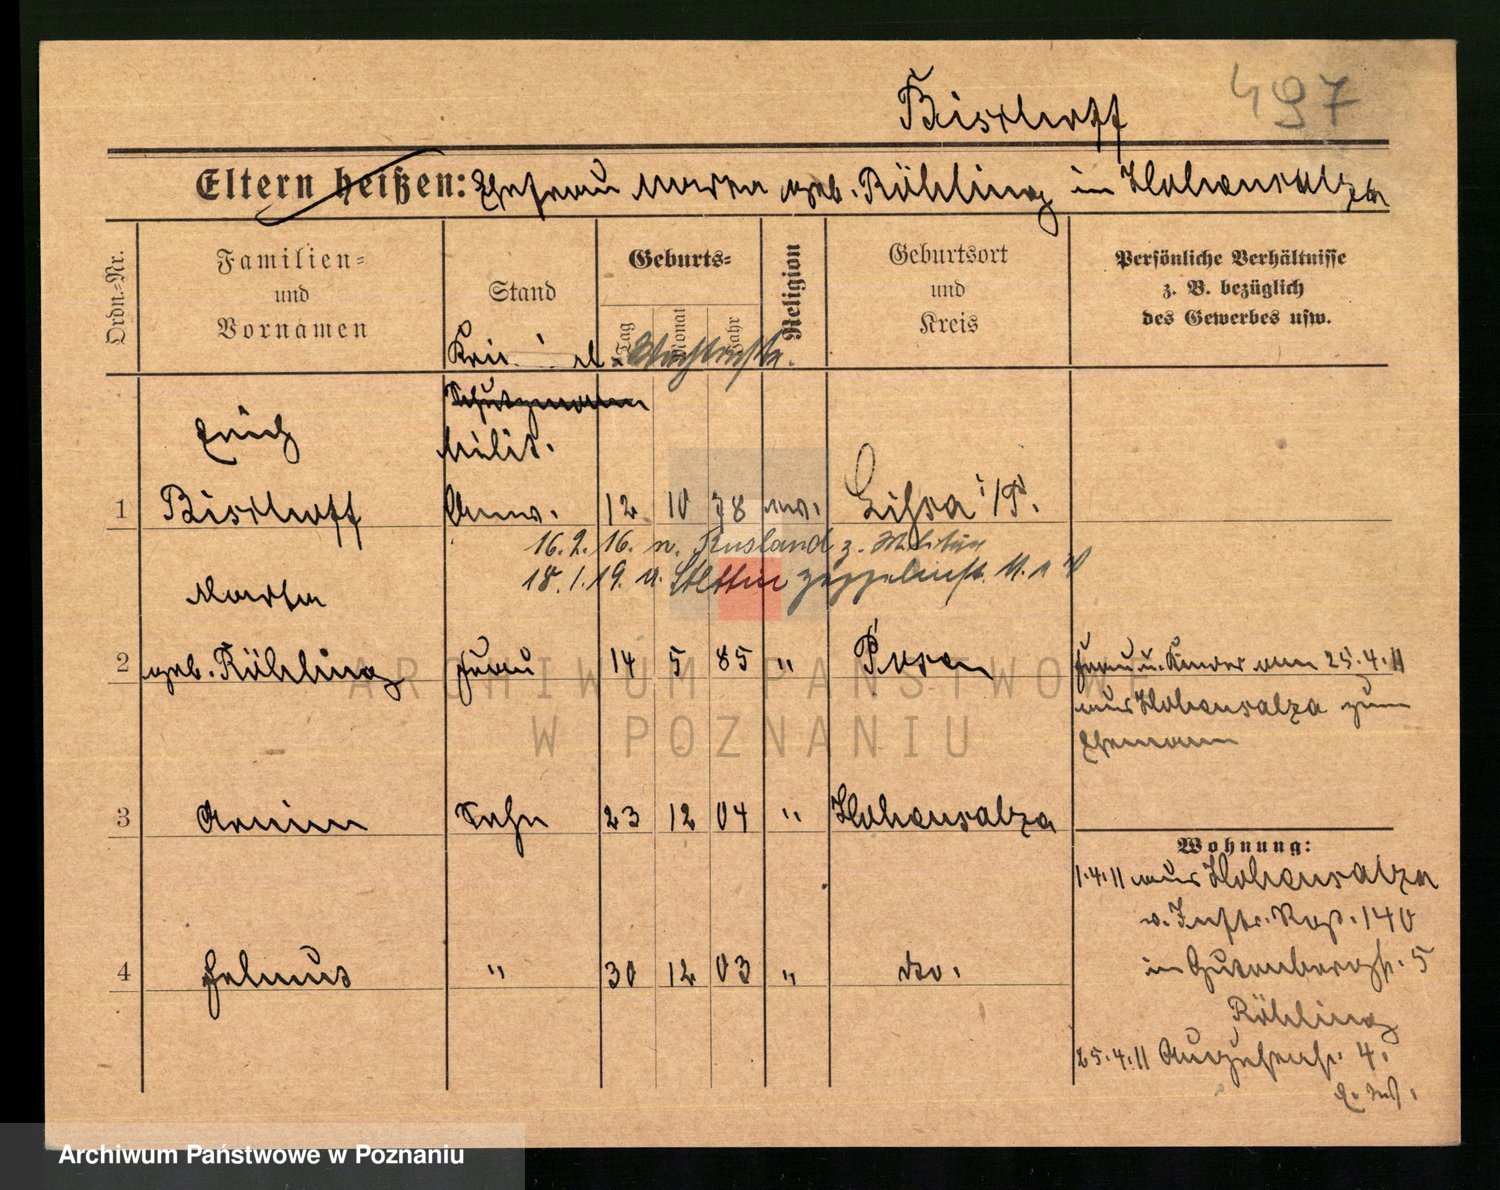 497
Bischoff
Eltern heißen: Ehefrau Marta geb. Röhling in Hohensalza
Ordn.-Nr.
Familien- und Vornamen
Stand
Geburts-
Tag
Monat
Jahr
Religion
Geburtsort und Kreis
Persönliche Verhältnisse z. B. bezüglich des Gewerbes usw.
Schutzmann
Erich
Milit.
1 Bischoff Anw. 12 10 78 ev. Lissa i/P.
16.2.16. n. Russland z. Militär
18.1.19. n. Stettin
Martha
2 geb. Röhling Frau 14 5 85 " Posen
Frau u. Kinder am 25.4.11
aus Hohensalza zum
Ehemann
3 Armin Sohn 23 12 04 " Hohensalza
Wohnung:
1.4.11 aus Hohensalza
v. Inftr. Rgt. 140
4 Helmus " 30 12 03 " do.
in Gutenbergstr. 5
Röhling
25.4.11 4.
ARCHIWUM PAŃSTWOWE
W POZNANIU
Archiwum Państwowe w Poznaniu